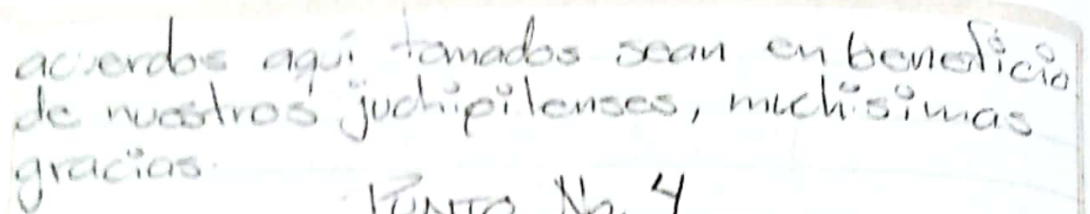 acuerdos aquí tomados sean en beneficio
de nuestros juchipilenses, muchisimas
gracias.
PUNTO No. 4